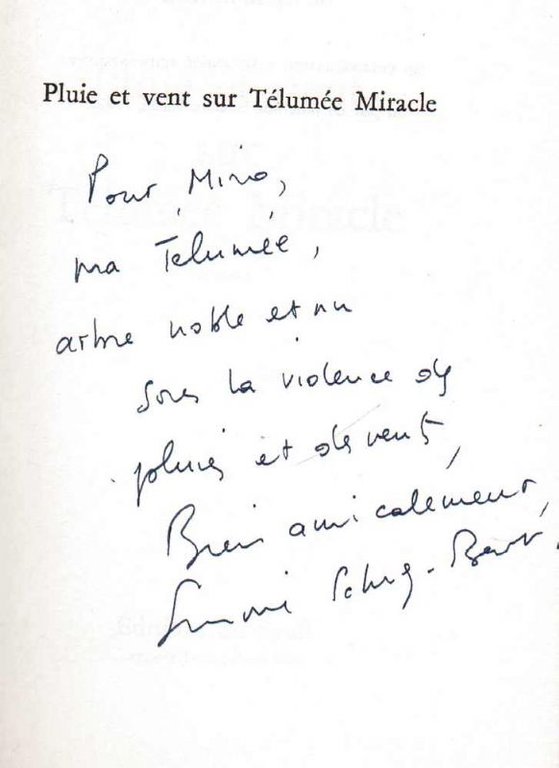 Pluie et vent sur Télumée Miracle
Pour Miro,
ma Telumée,
arbre noble et nu
sous la violence des
pluies et des vents,
Bien amicalement,
Simone Schwarz-Bart.